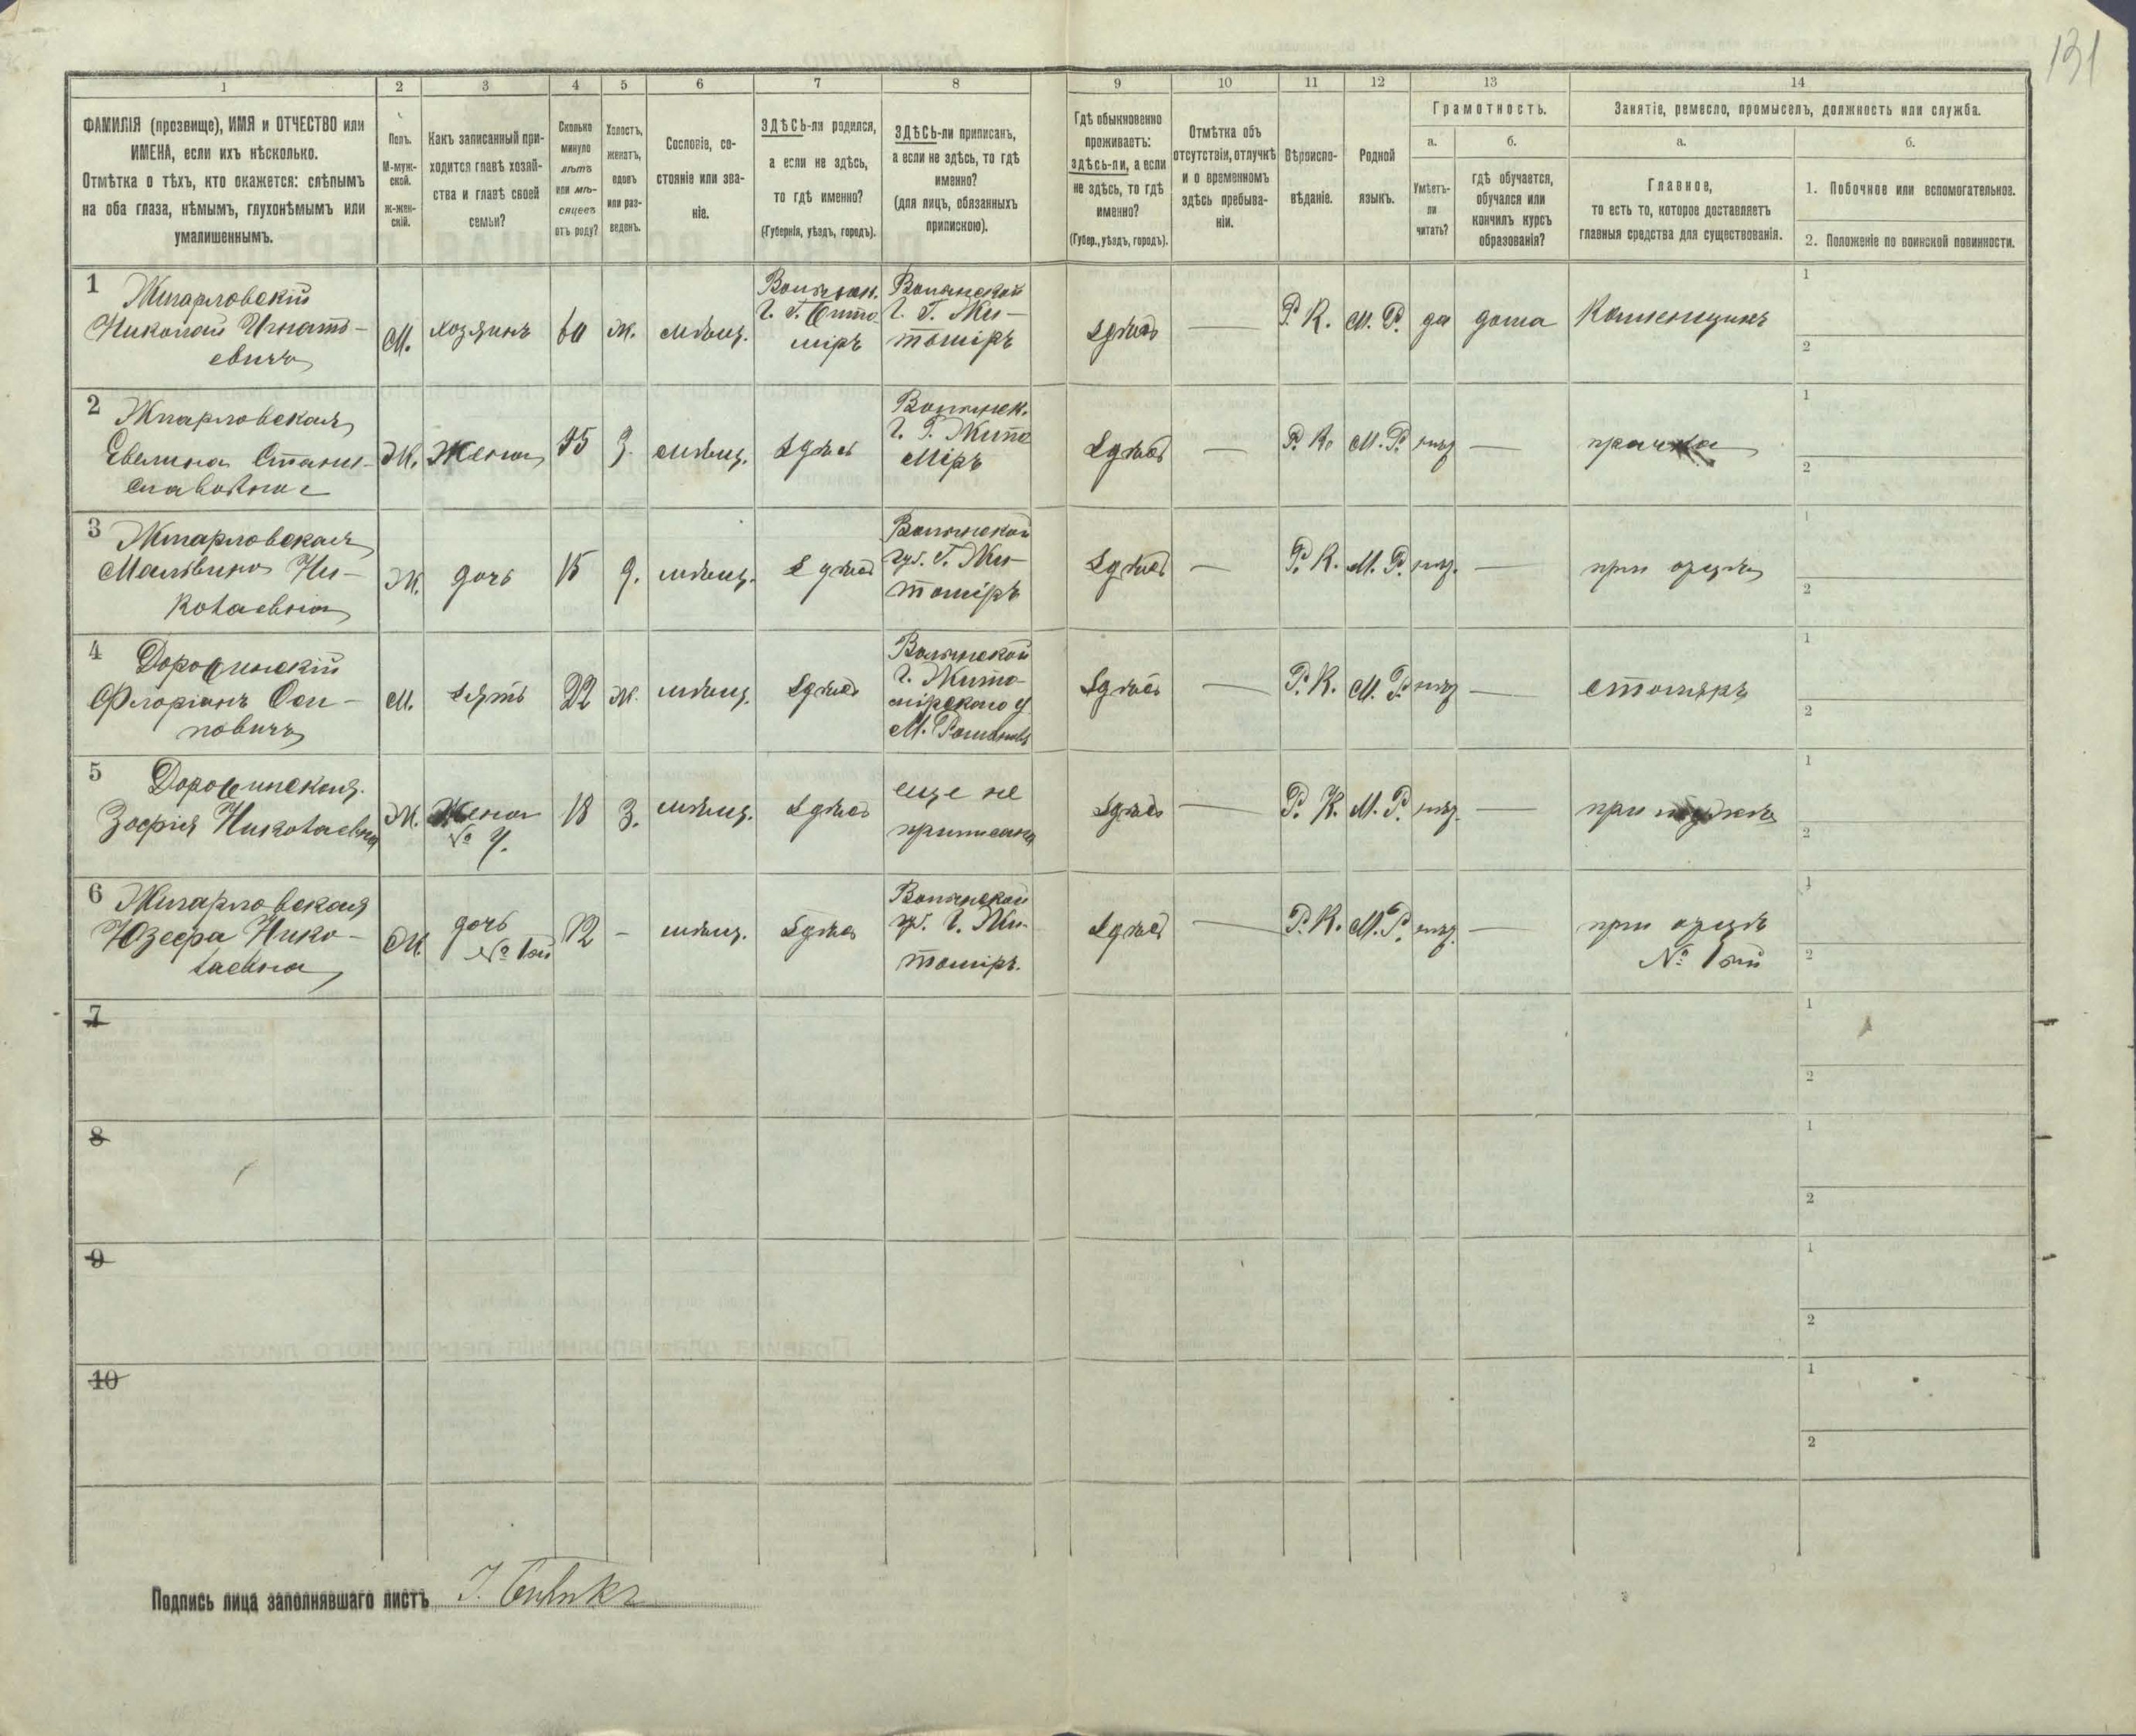 131
1 2 3 4 5 6 7 8 9 10 11 12 13 14
ФАМИЛІЯ (прозвище), ИМЯ и ОТЧЕСТВО или
ИМЕНА, если ихъ нѣсколько.
Отмѣтка о тѣхъ, кто окажется: слѣпымъ
на оба глаза, нѣмымъ, глухонѣмымъ или
умалишеннымъ.
Полъ.
М-муж-
ской.
Ж-жен-
скій.
Какъ записанный при-
ходится главѣ хозяй-
ства и главѣ своей
семьи?
Сколько
минуло
лѣтъ
или мѣ-
сяцевъ
отъ роду?
Холостъ,
женатъ,
вдовъ
или раз-
веденъ.
Сословіе, со-
стояніе или зва-
ніе.
ЗДѢСЬ-ли родился,
а если не здѣсь,
то гдѣ именно?
(Губернія, уѣздъ, городъ).
ЗДѢСЬ-ли приписанъ,
а если не здѣсь, то гдѣ
именно?
(для лицъ, обязанныхъ
припискою).
Гдѣ обыкновенно
проживаетъ:
здѣсь-ли, а если
не здѣсь, то гдѣ
именно?
(Губер., уѣздъ, городъ).
Отмѣтка объ
отсутствіи, отлучкѣ
и о временномъ
здѣсь пребыва-
ніи.
Вѣроиспо-
вѣданіе.
Родной
языкъ.
Грамотность.
а.
Умѣетъ-
ли
читать?
б.
гдѣ обучается,
обучался или
кончилъ курсъ
образованія?
Занятіе, ремесло, промыселъ, должность или служба.
а.
Главное,
то есть то, которое доставляетъ
главныя средства для существованія.
б.
1. Побочное или вспомогательное.
2. Положеніе по воинской повинности.
1
Николай Игнать-
евичъ
М.
хозяинъ
60
ж.
мѣщ.
Г. Жи-
томіръ
здѣсь
Р. К.
М. Р.
да
дома
Каменщикъ
1
2
2
Евелина Стани-
славовна
Ж.
Жена
45
З.
мѣщ.
здѣсь
Г. Г. Жито
міръ
здѣсь
Р. К.
М. Р.
нѣт
прачка
1
2
3
Мальвина Ни-
колаевна
Ж.
дочь
15
д.
мѣщ.
здѣсь
Волынской
губ. Г. Жи-
томіръ
здѣсь
Р. К.
М. Р.
нѣт.
при отцѣ
1
2
4
Флоріанъ Оси-
повичъ
М.
зять
22
ж.
мѣщ.
здѣсь
Волынской
Г. Жито-
мірскаго у
М. Романовъ
здѣсь
Р. К.
М. Р.
нѣт
столяръ
1
2
5
Зофія Николаевна
Ж.
Жена
№ 4.
18
З.
мѣщ.
здѣсь
еще не
приписана
здѣсь
Р. К.
М. Р.
нѣт.
при мужѣ
1
2
6
Юзефа Нико-
лаевна
Ж.
дочь
№ 1ой
12
-
мѣщ.
здѣсь
Волынской
гб. Г. Жи-
томіръ.
здѣсь
Р. К.
М. Р.
нѣт.
при отцѣ
№ 1ой
1
2
7
1
2
8
1
2
9
1
2
10
1
2
Подпись лица заполнявшаго листъ